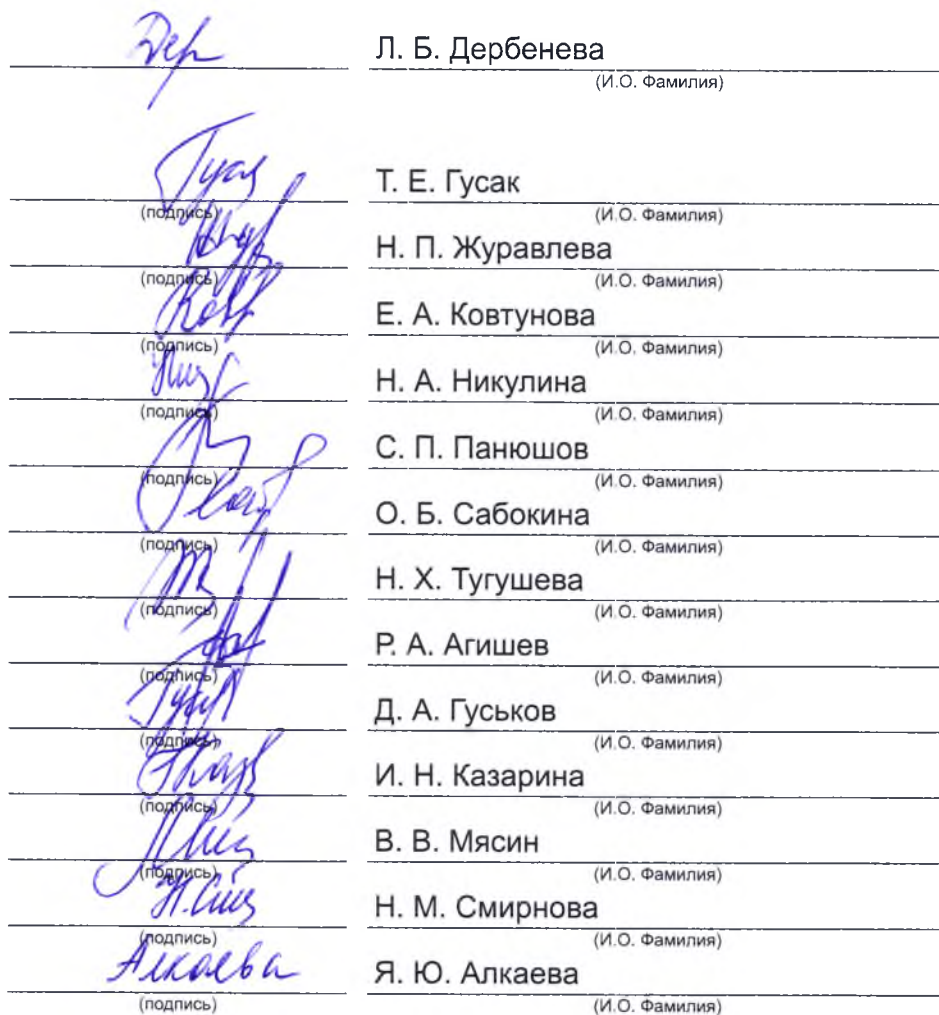 Л. Б. Дербенева
(И.О. Фамилия)
Т. Е. Гусак
(подпись) (И.О. Фамилия)
Н. П. Журавлева
(подпись) (И.О. Фамилия)
Е. А. Ковтунова
(подпись) (И.О. Фамилия)
Н. А. Никулина
(подпись) (И.О. Фамилия)
С. П. Панюшов
(подпись) (И.О. Фамилия)
О. Б. Сабокина
(подпись) (И.О. Фамилия)
Н. Х. Тугушева
(подпись) (И.О. Фамилия)
Р. А. Агишев
(подпись) (И.О. Фамилия)
Д. А. Гуськов
(подпись) (И.О. Фамилия)
И. Н. Казарина
(подпись) (И.О. Фамилия)
В. В. Мясин
(подпись) (И.О. Фамилия)
Н. М. Смирнова
(подпись) (И.О. Фамилия)
Алкаева Я. Ю. Алкаева
(подпись) (И.О. Фамилия)